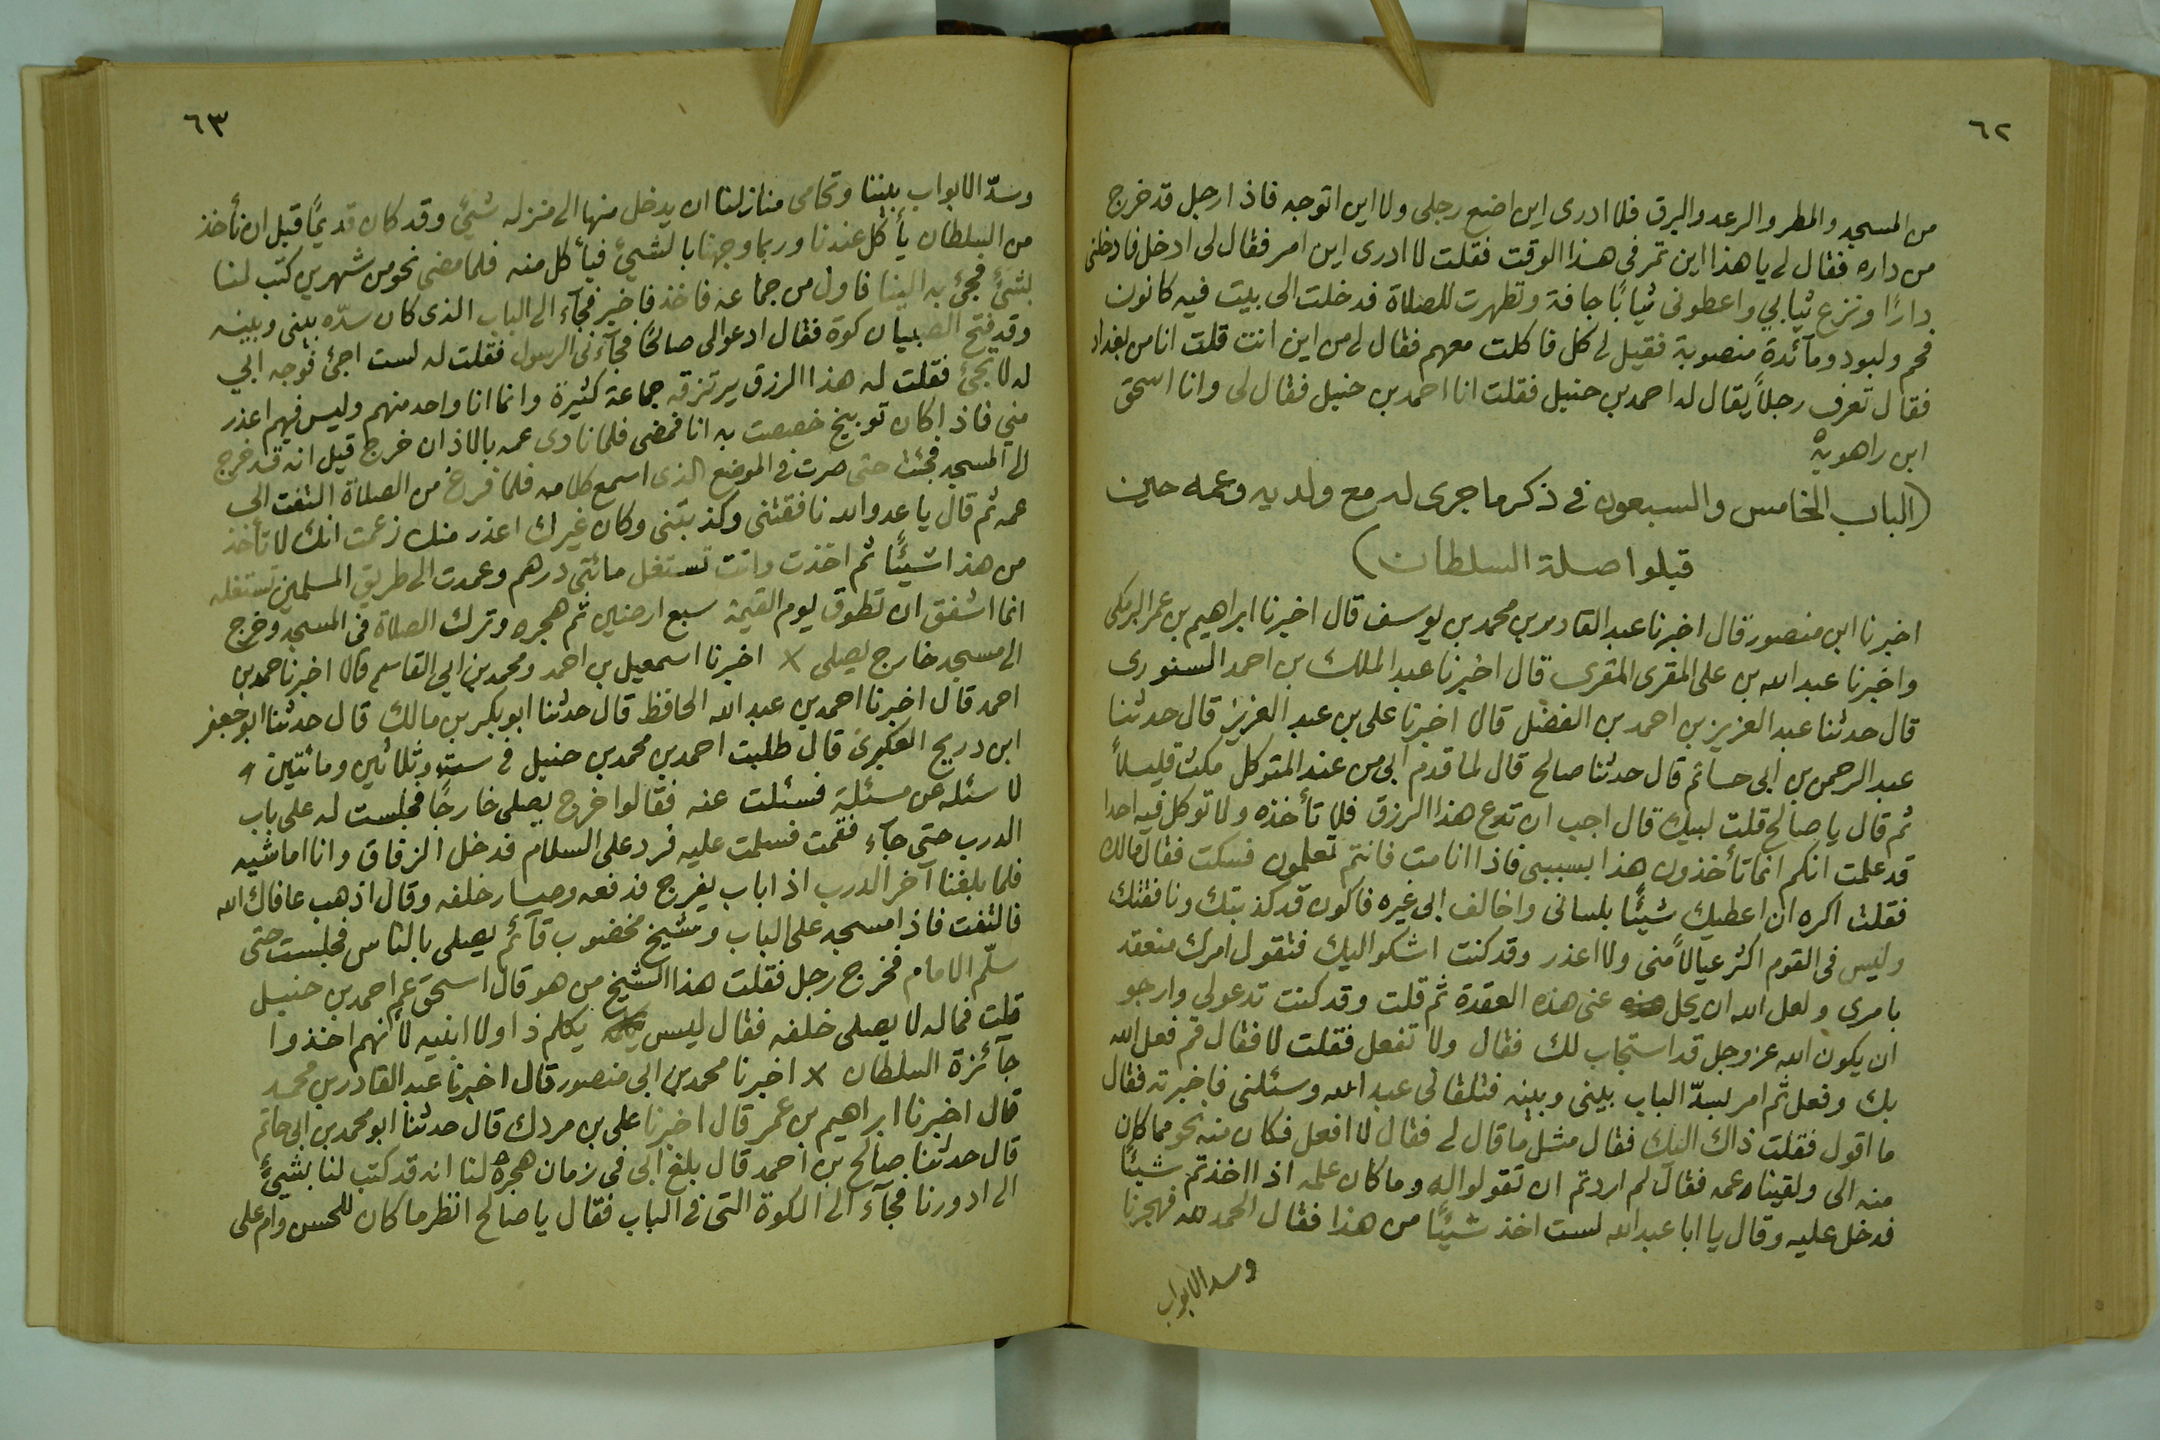 ٦٢
من المسجد والمطر والرعد والبرق فلا ادرى اين اضع رجلى ولا اين اتوجه فاذا رجل قد خرج
من داره فقال لي يا هذا اين تمر في هذا الوقت فقلت لا ادرى اين امر فقال لى ادخل فادخلنى
دارًا ونزع ثيابي واعطونى ثيابًا جافة وتطهرت للصلاة فدخلت الى بيت فيه كانون
فحم ولبود ومآئدة منصوبة فقيل لي كل فاكلت معهم فقال لي من اين انت قلت انا من بغداد
فقال تعرف رجلاً يقال له احمد بن حنبل فقلت انا احمد بن حنبل فقال لى وانا اسحق
ابن راهويه
(الباب الخامس والسبعون في ذكر ما جرى له مع ولديه وعمه حين
قبلوا صلة السلطان)
اخبرنا ابن منصور قال اخبرنا عبد القادر بن محمد بن يوسف قال اخبرنا ابراهيم بن عمر البرمكى
واخبرنا عبد الله بن على المقرى المقرى قال اخبرنا عبد الملك بن احمد السنورى
قال حدثنا عبد العزيز بن احمد بن الفضل قالا اخبرنا على بن عبد العزيز قال حدثنا
عبد الرحمن بن ابى حاتم قال حدثنا صالح قال لما قدم ابى من عند المتوكل مكث قليلاً
ثم قال يا صالح قلت لبيك قال احب ان تدع هذا الرزق فلا تأخذه ولا توكل فيه احدا
قد علمت انكم انما تأخذون هذا بسببى فاذا انا مت فانتم تعلمون فسكت فقال مالك
فقلت اكره ان اعطيك شيئًا بلسانى واخالف الى غيره فاكون قد كذبتك ونافقتك
وليس فى القوم اكثر عيالاً منى ولا اعذر وقد كنت اشكو اليك فتقول امرك منعقد
بامرى ولعل الله ان يحل عنى هذه العقدة ثم قلت وقد كنت تدعو لي وارجو
ان يكون الله عز وجل قد استجاب لك فقال ولا تفعل فقلت لا فقال قم فعل الله
بك وفعل ثم امر بسدّ الباب بينى وبينه فتلقانى عبد الله وسئلنى فاخبرته فقال
ما اقول فقلت ذاك اليك فقال مثل ما قال لي فقال لا افعل فكان منه نحو مما كان
منه الى ولقيناه عمه فقال لم اردتم ان تقولوا له وما كان علمه اذا اخذتم شيئًا
فدخل عليه وقال يا ابا عبد الله لست اخذ شيئًا من هذا فقال الحمد لله فهجرنا
وسد الابواب
٦٣
وسدّ الابواب بيننا وتحامى منازلنا ان يدخل منها الى منزله شيئ وقد كان قديمًا قبل ان نأخذ
من السلطان يأكل عندنا وربما وجهنا بالشيئ فيأكل منه فلما مضى نحو من شهرين كتب لنا
بشيئ فجيئ به الينا فاول من جآء عمه فاخذ فاخبر فجآء الى الباب الذى كان سدّه بينى وبينه
وقد فتح الصبيان كوة فقال ادعوا لى صالحًا فجآءنى الرسول فقلت له لست اجئ فوجه ابي
له لا يجيئ فقلت له هذا الرزق يرتزقه جماعة كثيرة وانما انا واحد منهم وليس فيهم اعذر
مني فاذا كان توبيخ خصصت به انا فمضى فلما نادى عمه بالاذان خرج قيل انه قد خرج
الى المسجد فجئت حتى صرت في الموضع الذى اسمع كلامه فلما فرغ من الصلاة التفت الى
عمه ثم قال يا عدو الله نافقتنى وكذبتنى وكان غيرك اعذر منك زعمت انك لا تأخذ
من هذا شيئًا ثم اخذت وانت تستغل مائتى درهم وعمدت الى طريق المسلمين تستغله
انما اشفق ان تطوق يوم القيمة سبع ارضين ثم هجره وترك الصلاة فى المسجد وخرج
الى مسجد خارج يصلى × اخبرنا اسمعيل بن احمد ومحمد بن ابى القاسم قالا اخبرنا حمد بن
احمد قال اخبرنا احمد بن عبد الله الحافظ قال حدثنا ابو بكر بن مالك قال حدثنا ابو جعفر
ابن دريج العكبرى قال طلبت احمد بن محمد بن حنبل في ست وثلاثين ومائتين
لاسئله عن مسئلة فسئلت عنه فقالوا خرج يصلى خارجًا فجلست له على باب
الدرب حتى جآء فقمت فسلمت عليه فرد على السلام فدخل الزقاق وانا اماشيه
فلما بلغنا آخر الدرب اذا باب يفرج فدفعه وصار خلفه وقال اذهب عافاك الله
فالتفت فاذا مسجد على الباب وشيخ مخضوب قآئم يصلى بالناس فجلست حتى
سلّم الامام فخرج رجل فقلت هذا الشيخ من هو قال اسحق عم احمد بن حنبل
قلت فما له لا يصلى خلفه فقال ليس يكلم ذا ولا ابنيه لأنهم اخذوا
جآئزة السلطان × اخبرنا محمد بن ابى منصور قال اخبرنا عبد القادر بن محمد
قال اخبرنا ابراهيم بن عمر قال اخبرنا على بن مردك قال حدثنا ابو محمد بن ابى حاتم
قال حدثنا صالح بن احمد قال بلغ ابى فى زمان هجره لنا انه قد كتب لنا بشيئ
الى ادورنا فجآء الى الكوة التى فى الباب فقال يا صالح انظر ما كان للحسن وام على